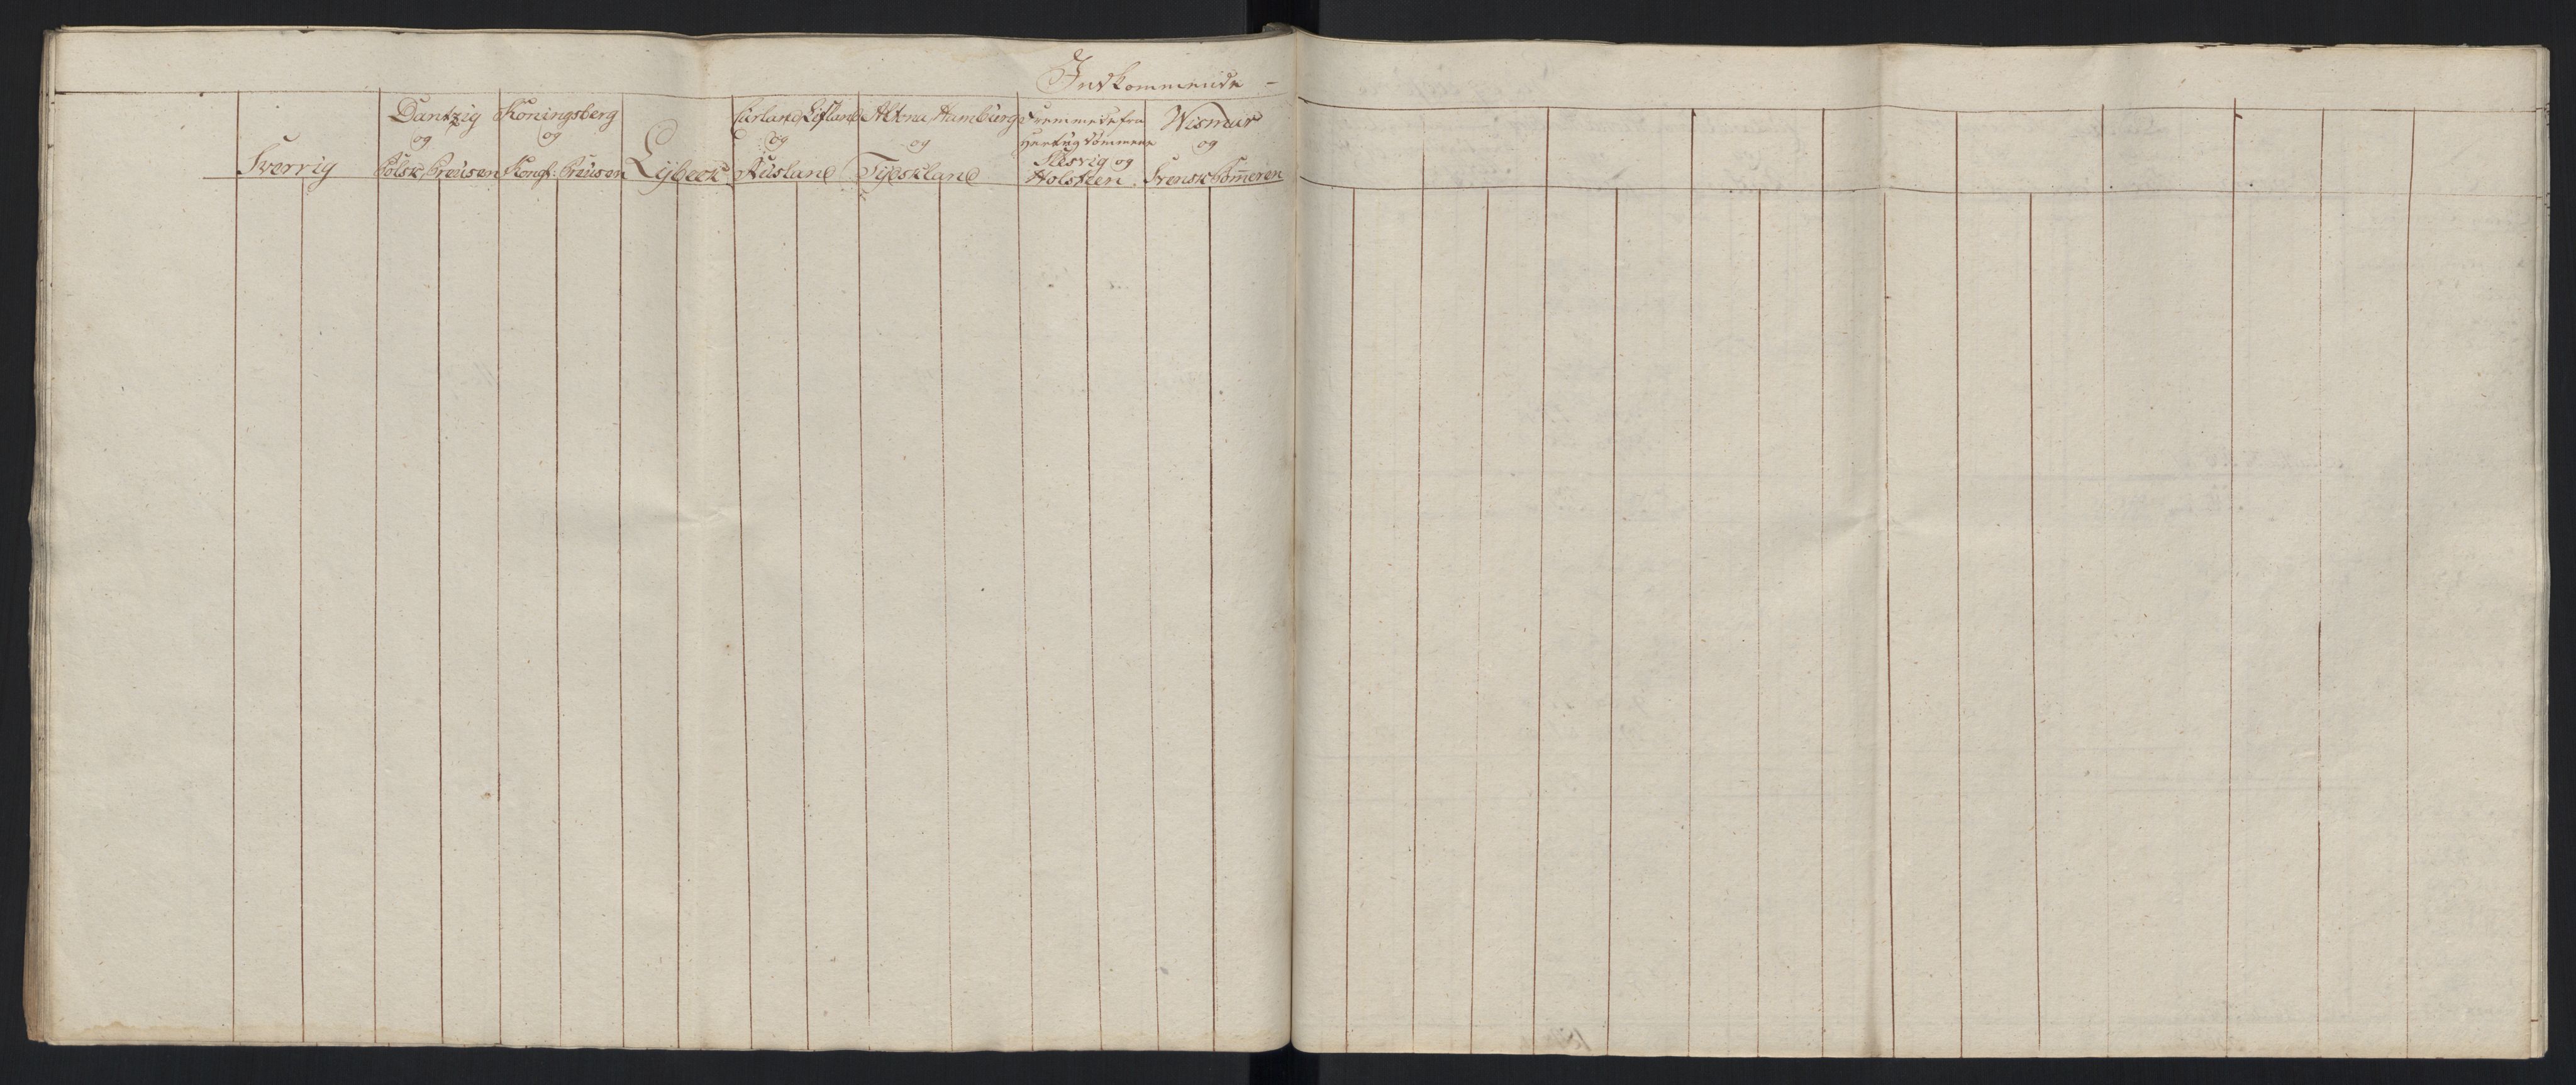 Indkommende –
Sverrig
Dantzig
og
Polsk Preusen
Koningsberg
og
Kongl: Preusen
Lybeck
Curland, Lifland
og
Rusland
Altona, Hamburg
og
Tydskland
Fremmede fra
Hertugdømmene
Slesvig og
Holsteen
Wismar
og
Svensk Pom̄eren